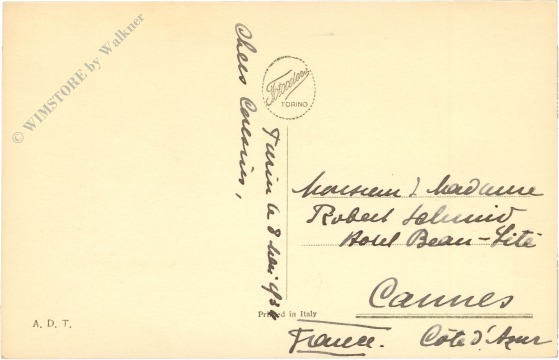 © WIMSTORE by Walkner
Chers Cousins,
Turin le 8 Mai 1934
Fotocelere
TORINO
Monsieur & Madame
Robert Schmid
Hotel Beau-Site
Cannes
France. Côte d'Azur
Printed in Italy
A. D. T.